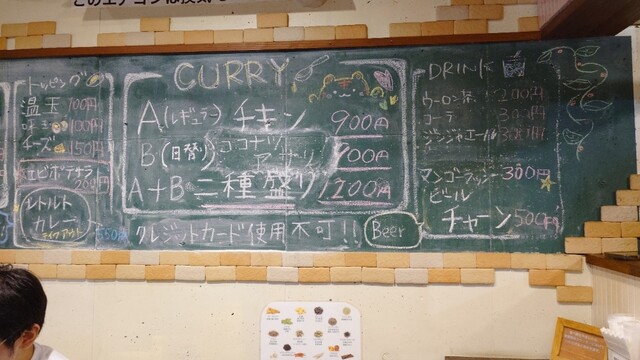 トッピング
温玉 100円
味玉 100円
チーズ 150円
エビポテサラ 200円
レトルト
カレー
テイクアウト
CURRY
A(レギュラー) チキン 900円
B(日替り) ココナツ アサリ 900円
A+B 二種盛り 1200円
クレジットカード使用不可!!
Beer
DRINK
ウーロン茶 200円
コーラ 300円
ジンジャエール 300円
マンゴーラッシー 300円
ビール
チャーン 500円